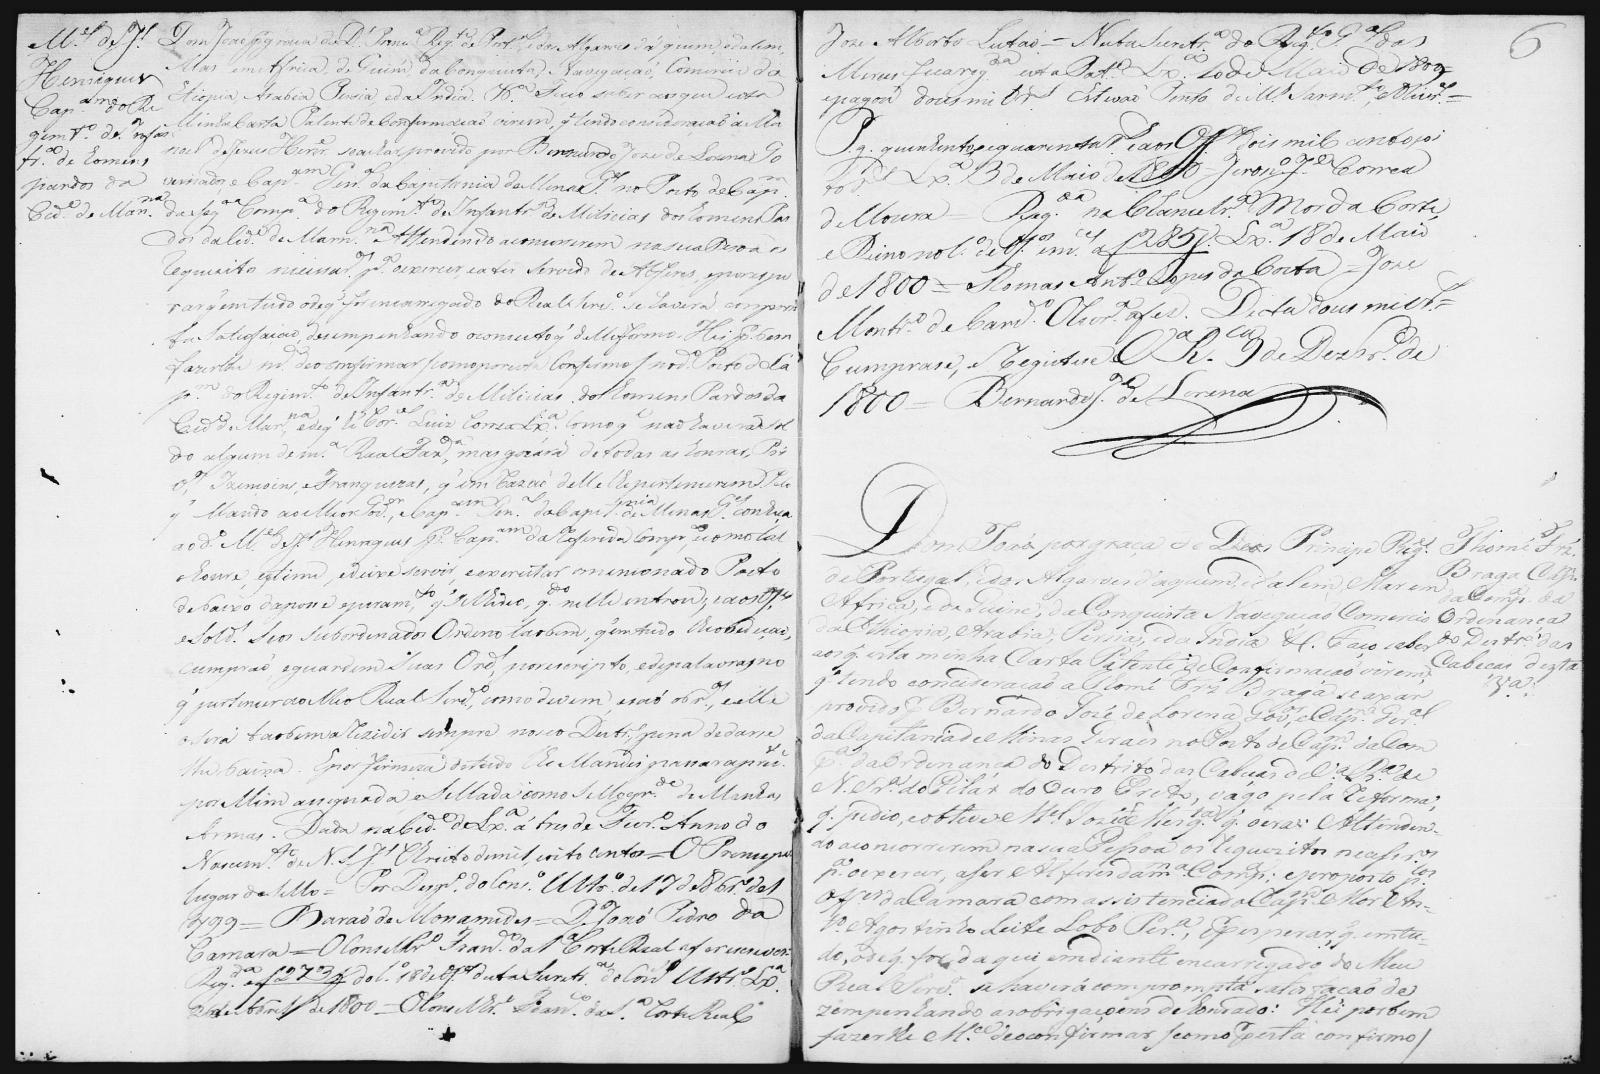 M.el de J.s
Henriques
Cap.am do Re
gim.to de Infan
tr.a de Homens
pardos da
Cid.e de Mar.na
Dom João por graça de D.s Princ.e Reg.te de Port.al e dos Algarves d'aquem, e dalem,
Mar em Africa, de Guiné, e da Conquista, Navegação, Comercio da
Etiopia Arabia Persia e da India. &.a Faço saber aos que esta
Minha Carta Patente de Confirmação virem, q' tendo consideração a Ma
noel de Jezus Henr.es se achar provido por Bernardo Joze de Lorena Go
vernador e Cap.am Gen.al da Capitania de Minas G.es no Posto de Cap.m
da Comp.a do Regim.to de Infantr.a de Milicias dos Homens Par
dos da Cid.e de Marn.na Attendendo a concorrerem na sua Pessoa os
requizitos necessar.os p.a o exercer, e a ter servido de Alferes, e por espe
rar q' em tudo o de q' for encarregado do Real Serv.o se haverá com prom
ta satisfação, desempenhando o conceito q' delle formo. Hei por bem
fazer lhe m.ce de o confirmar (como por esta Confirmo) no d.o Posto de Ca
p.m do Regim.to de Infantr.a de Milicias dos Homens Pardos da
Cid.e de Mar.na, e de q' he Cor.el Luiz Correa Lx.a Como q' não haverá Sol
do algum de m.a Real Faz.a, mas gozará de todas as honras, Pri
v.os, Izençoins, e Franquezas, q' em razão delle lhe pertencerem Pelo
q' Mando ao Meo Gov.or, e Cap.am Gen.al da Capit.nia de Minas G.es conheça
ao d.o M.el de J.s Henriques por Cap.am da referida Comp.a, e como tal
o honre, estime, e deixe servir, e exercitar o mencionado Posto
debaixo da posse e juram.to, q' se lhe deo, q.do nelle entrou; e aos Off.es
e Sold.os Seos Subordinados Ordeno tambem, q' em tudo lhe obedeção,
cumprão, e guardem Suas Ord.s por escripto, e de palavra, no
q' pertencer ao Meo Real Serv.o, como devem, e são obr.os, e elle
o será tambem a rezidir sempre no seo Destr.o, pena de darse
lhe baixa. E por firmeza de tudo lhe Mandei passar a prez.te
por Mim assignada, e Sellada como Sello gr.de de Minhas
Armas. Dada na Cid.e de Lx.a á tres de Fever.o Anno do
Nascim.to de N. S. J.s Christo de mil, oito centos = O Principe
Lugar do Sello = Por Desp.o do Cons.o Ultr.o de 17 de 8br.o de 1
799 = Barão de Mossamedes = D. João Pedro da
Camara = O Conselhr.o Fran.co da S.a Corte Real a fez escrever.
Reg.da a f 273 v do L.o 18 de Off.os desta Secretr.a do Con.o Ultr.o Lx.a
de Abril de 1800 = O Cons.elhr.o Fran.co da S.a Corte Real
6
Joze Alberto Leitão = Nesta Secretr.a do Reg.to G.al das
Merces fica reg.da esta Pat.e Lx.a 10 de Maio de 1800
e pagou dous mil r.s Estevão Pinto de M.es Sarm.to e Oliver.a =
Pg. quinhentos e quarenta r.s e aos Off.es dois mil cento, oi
to r.s Lx.a 13 de Maio de 1800 = Jeron.o J.e Correa
de Moura = Reg.da na Chancelr.a Mor da Corte,
e Reino no L.o de Off.os em.ces a f 285 v. Lx.a 18 de Maio
de 1800 = Thomas Ant.o Lopes da Costa = Joze
Montr.o de Carv.o Oliver.a a fez. Desta dous mil r.s =
Cumprase, e Registese V.a R.ca 9 de Dezbr.o de
1800 = Bernardo J.e de Lorena
Thomé Frz
Braga Cap.m
da Comp.a da
Ordenança
do Destr.o das
Cabeças desta
V.a
Dom João por graça de Deos Principe Reg.te
de Portugal, e dos Algarves d'aquem, e d'alem, Mar em
Africa, e de Guiné, e da Conquista Navegação Comercio
da Ethiopia, Arabia, Persia, e da India &c. Faço saber
aos q' esta minha Carta Patente de Confirmação virem
q' tendo concideração a Thomé Frz Braga se axar
provido por Bernardo José de Lorena Gov.or, e Cap.m Ger.al
da Capitania de Minas Geraes no Posto de Cap.m da Com
p.a da Ordenança do Destrito das Cabeças de V.a Rica de
N. Snr.a do Pilar do Ouro Preto, vago pela reforma,
q. pedio, e obteve M.el José q' o era: Attenden-
do a concorrerem na sua Pessoa os requezitos necessr.os
p.a o exercer, a ser Alferes da m.ma Comp.a, e proposto p.los
Off.es da Camara com assistencia do Cap.m Mor An-
t.o Agostinho Leite Lobo Per.a, E p.r esperar, q. em tu-
do, o de q. for, daqui emdiante encarregado do Meu
Real Serv.o se haverá com prompta satisfação de
zempenhando as obrigaçoens de honrado: Hei por bem
fazerlhe M.ce de o confirmar (como p.r esta confirmo)